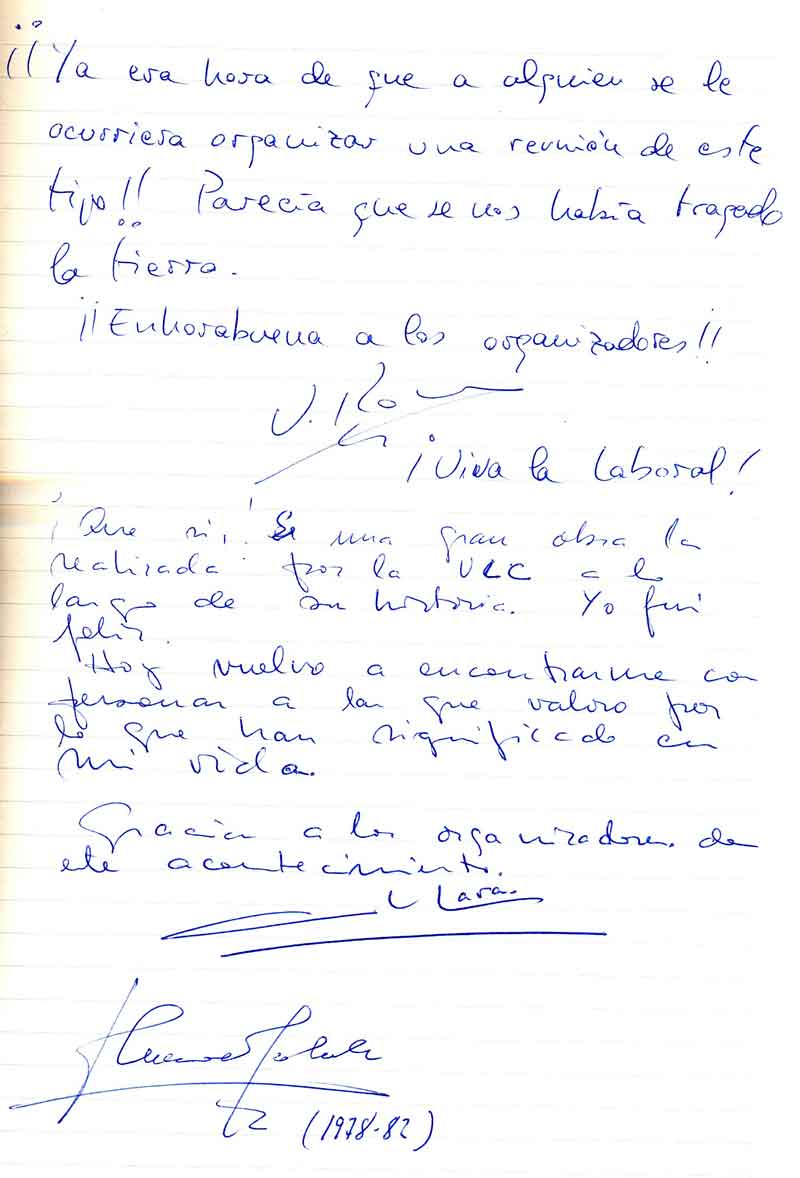 ¡¡Ya era hora de que a alguien se le
ocurriera organizar una reunión de este
tipo!! Parecía que se nos había tragado
la tierra.
¡¡Enhorabuena a los organizadores!!
¡Viva la Laboral!
¡Que si, ! una gran obra la
realizada por la ULC a lo
largo de su historia. Yo fui
feliz.
Hoy vuelvo a encontrarme con
personas a las que valoro por
lo que han significado en
mi vida.
Gracias a los organizadores de
este acontecimiento.
Lara.
(1978-82)